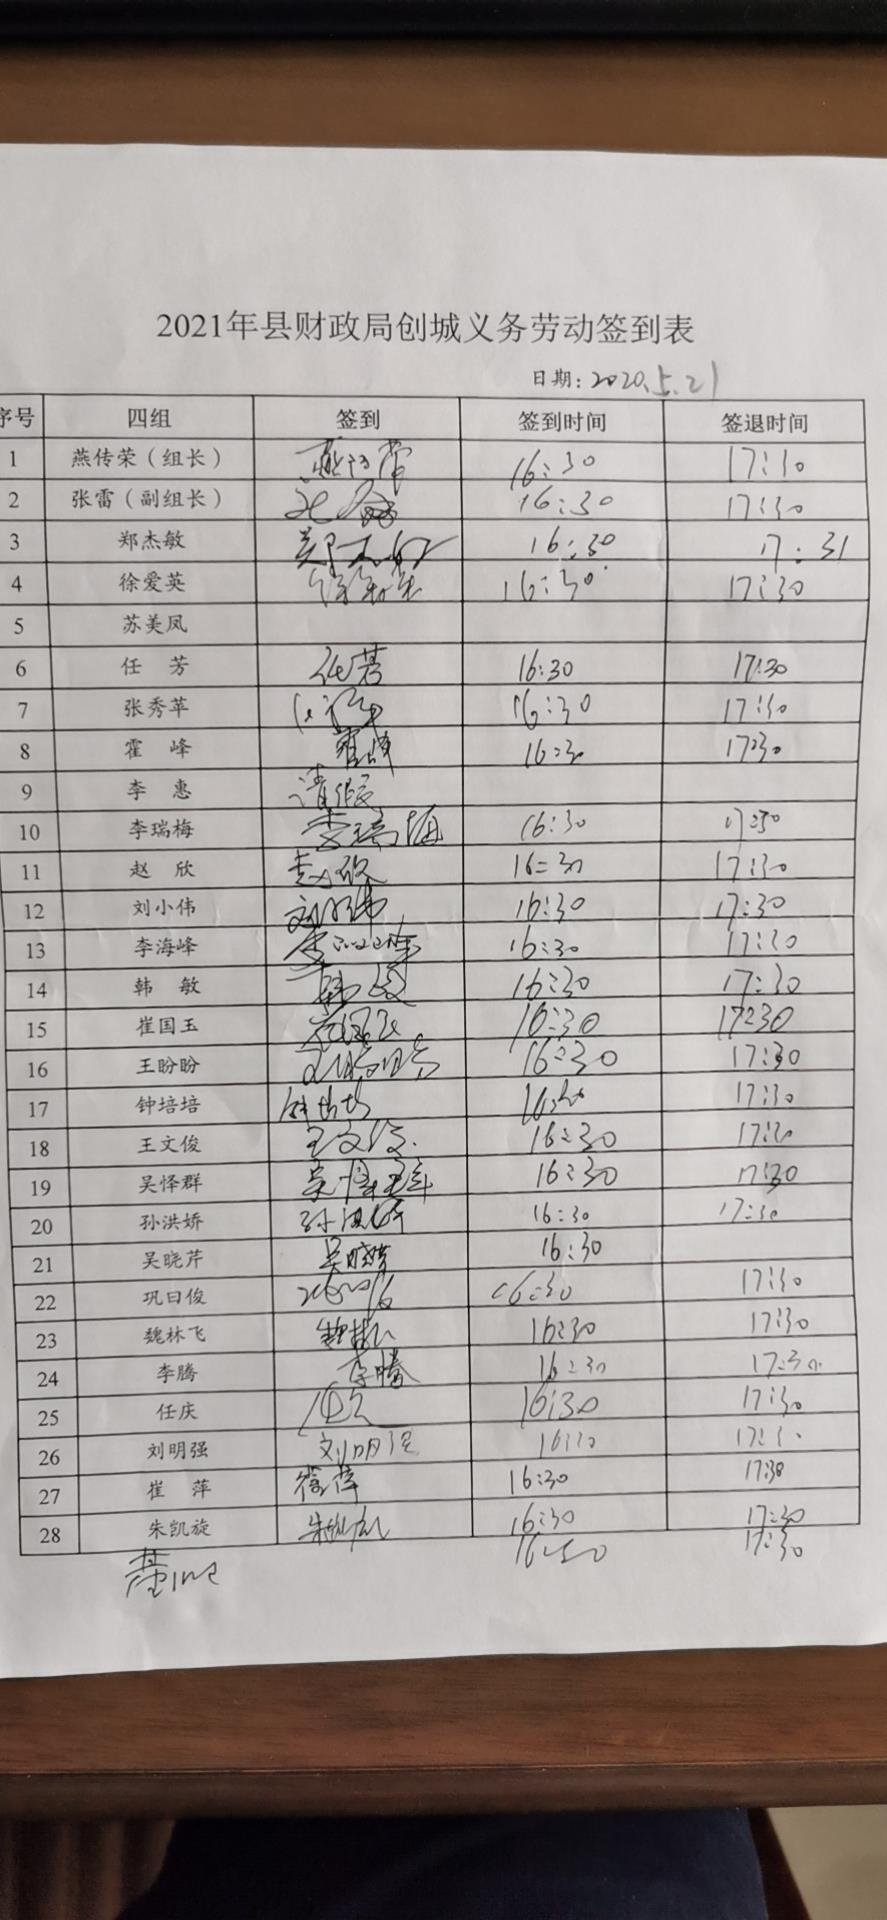 2021年县财政局创城义务劳动签到表
日期：2020.5.21
序号 四组 签到 签到时间 签退时间
1 燕传荣（组长） 燕传荣 16:30 17:30
2 张雷（副组长） 16:30 17:30
3 郑杰敏 郑杰敏 16:30 17:31
4 徐爱英 徐爱英 16:30 17:30
5 苏美凤
6 任 芳 任芳 16:30 17:30
7 张秀苹 16:30 17:30
8 霍 峰 霍峰 16:30 17:30
9 李 惠 请假
10 李瑞梅 李瑞梅 16:30 17:30
11 赵 欣 赵欣 16:30 17:30
12 刘小伟 刘小伟 16:30 17:30
13 李海峰 李海峰 16:30 17:30
14 韩 敏 韩敏 16:30 17:30
15 崔国玉 崔国玉 16:30 17:30
16 王盼盼 王盼盼 16:30 17:30
17 钟培培 钟培培 16:30 17:30
18 王文俊 王文俊 16:30 17:30
19 吴怿群 吴怿群 16:30 17:30
20 孙洪娇 孙洪娇 16:30 17:30
21 吴晓芹 吴晓芹 16:30
22 巩曰俊 16:30 17:30
23 魏林飞 魏林飞 16:30 17:30
24 李腾 李腾 16:30 17:30
25 任庆 任庆 16:30 17:30
26 刘明强 刘明强 16:30 17:30
27 崔 萍 崔萍 16:30 17:30
28 朱凯旋 朱凯旋 16:30 17:30
16:30 17:30